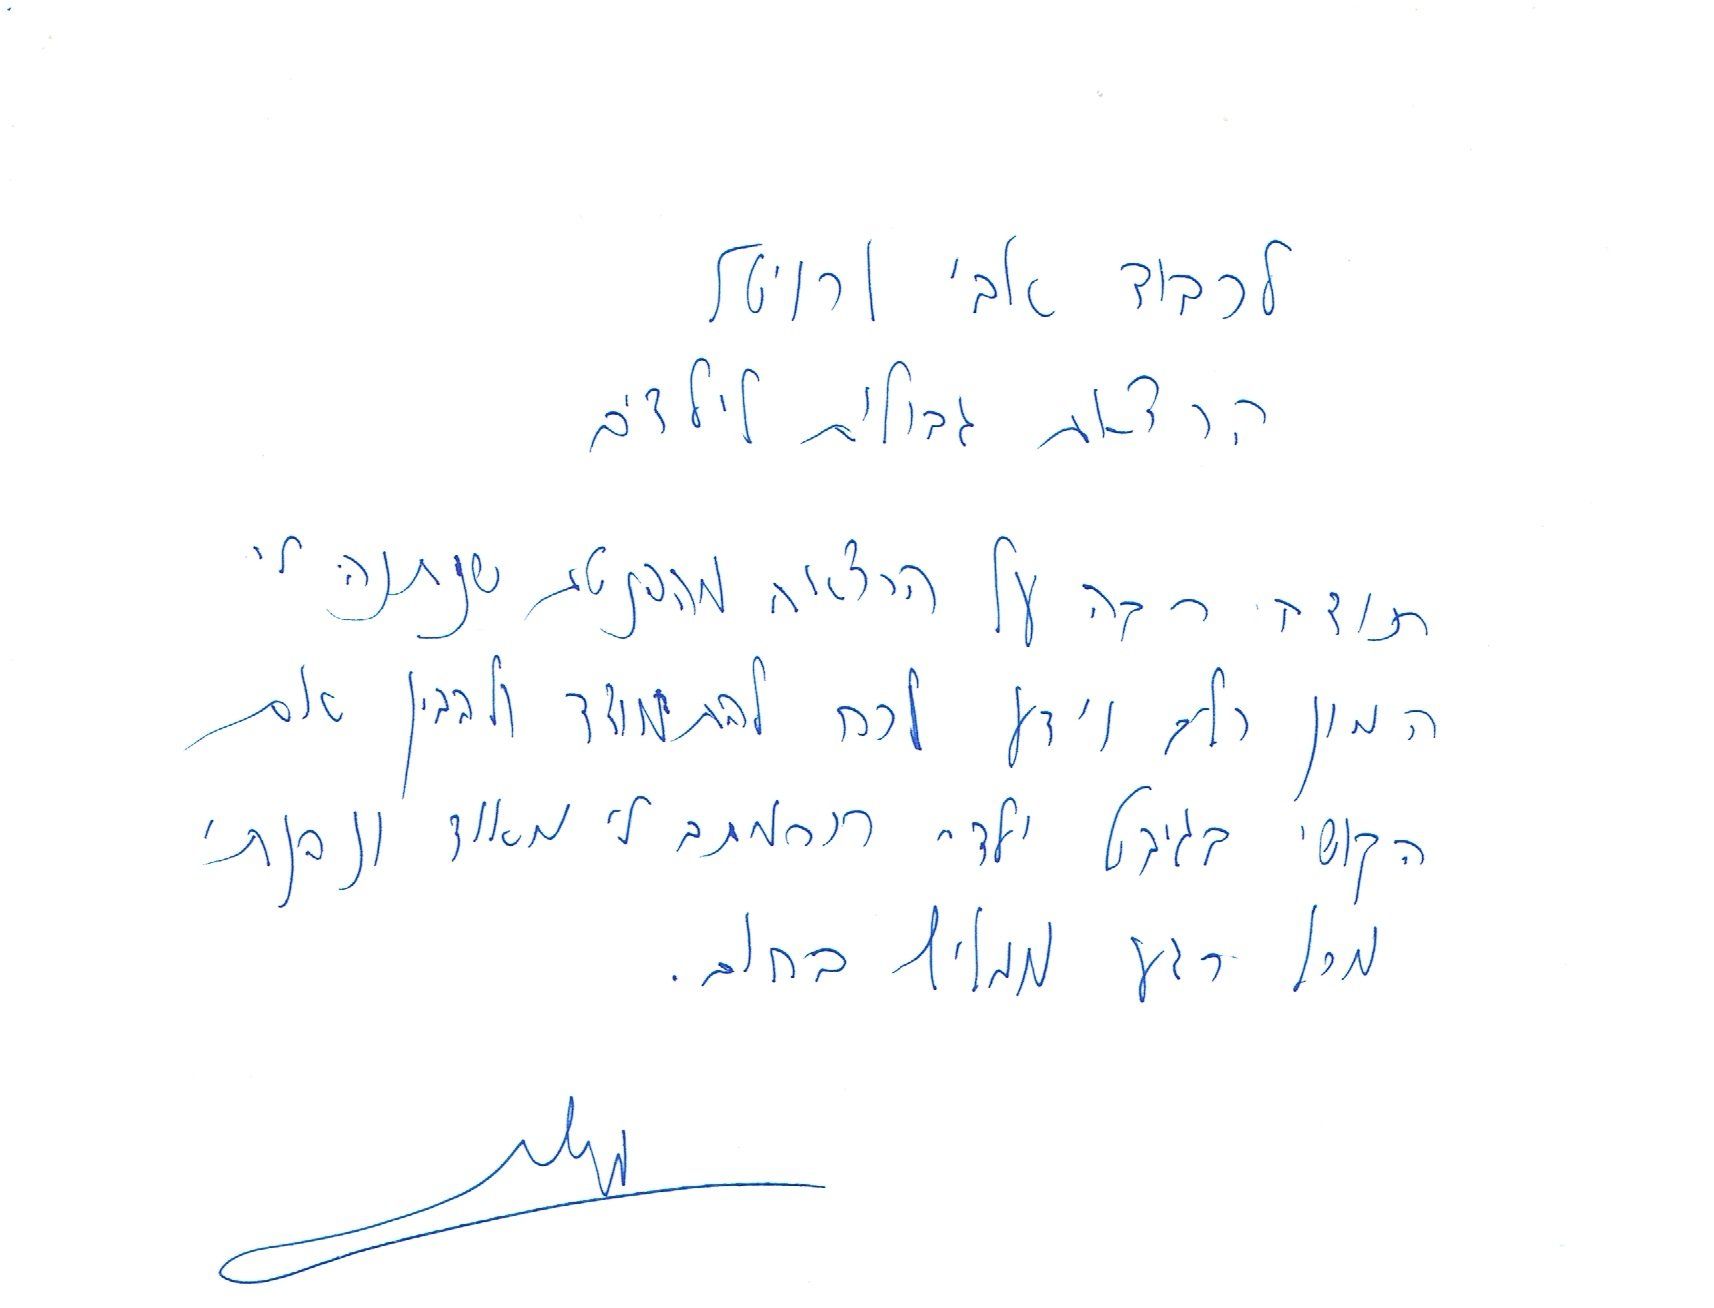 לכבוד אבי ורויטל
הרצאת גבולית לילדים
תודה רבה על הרצאה מהפנטת שנתנה לי
המון כלים וידע וכח להתמודד ולהבין את
הקושי בגיבול ילדי הנחמתם לי מאוד ונהנתי
מכל רגע ממליץ בחום.